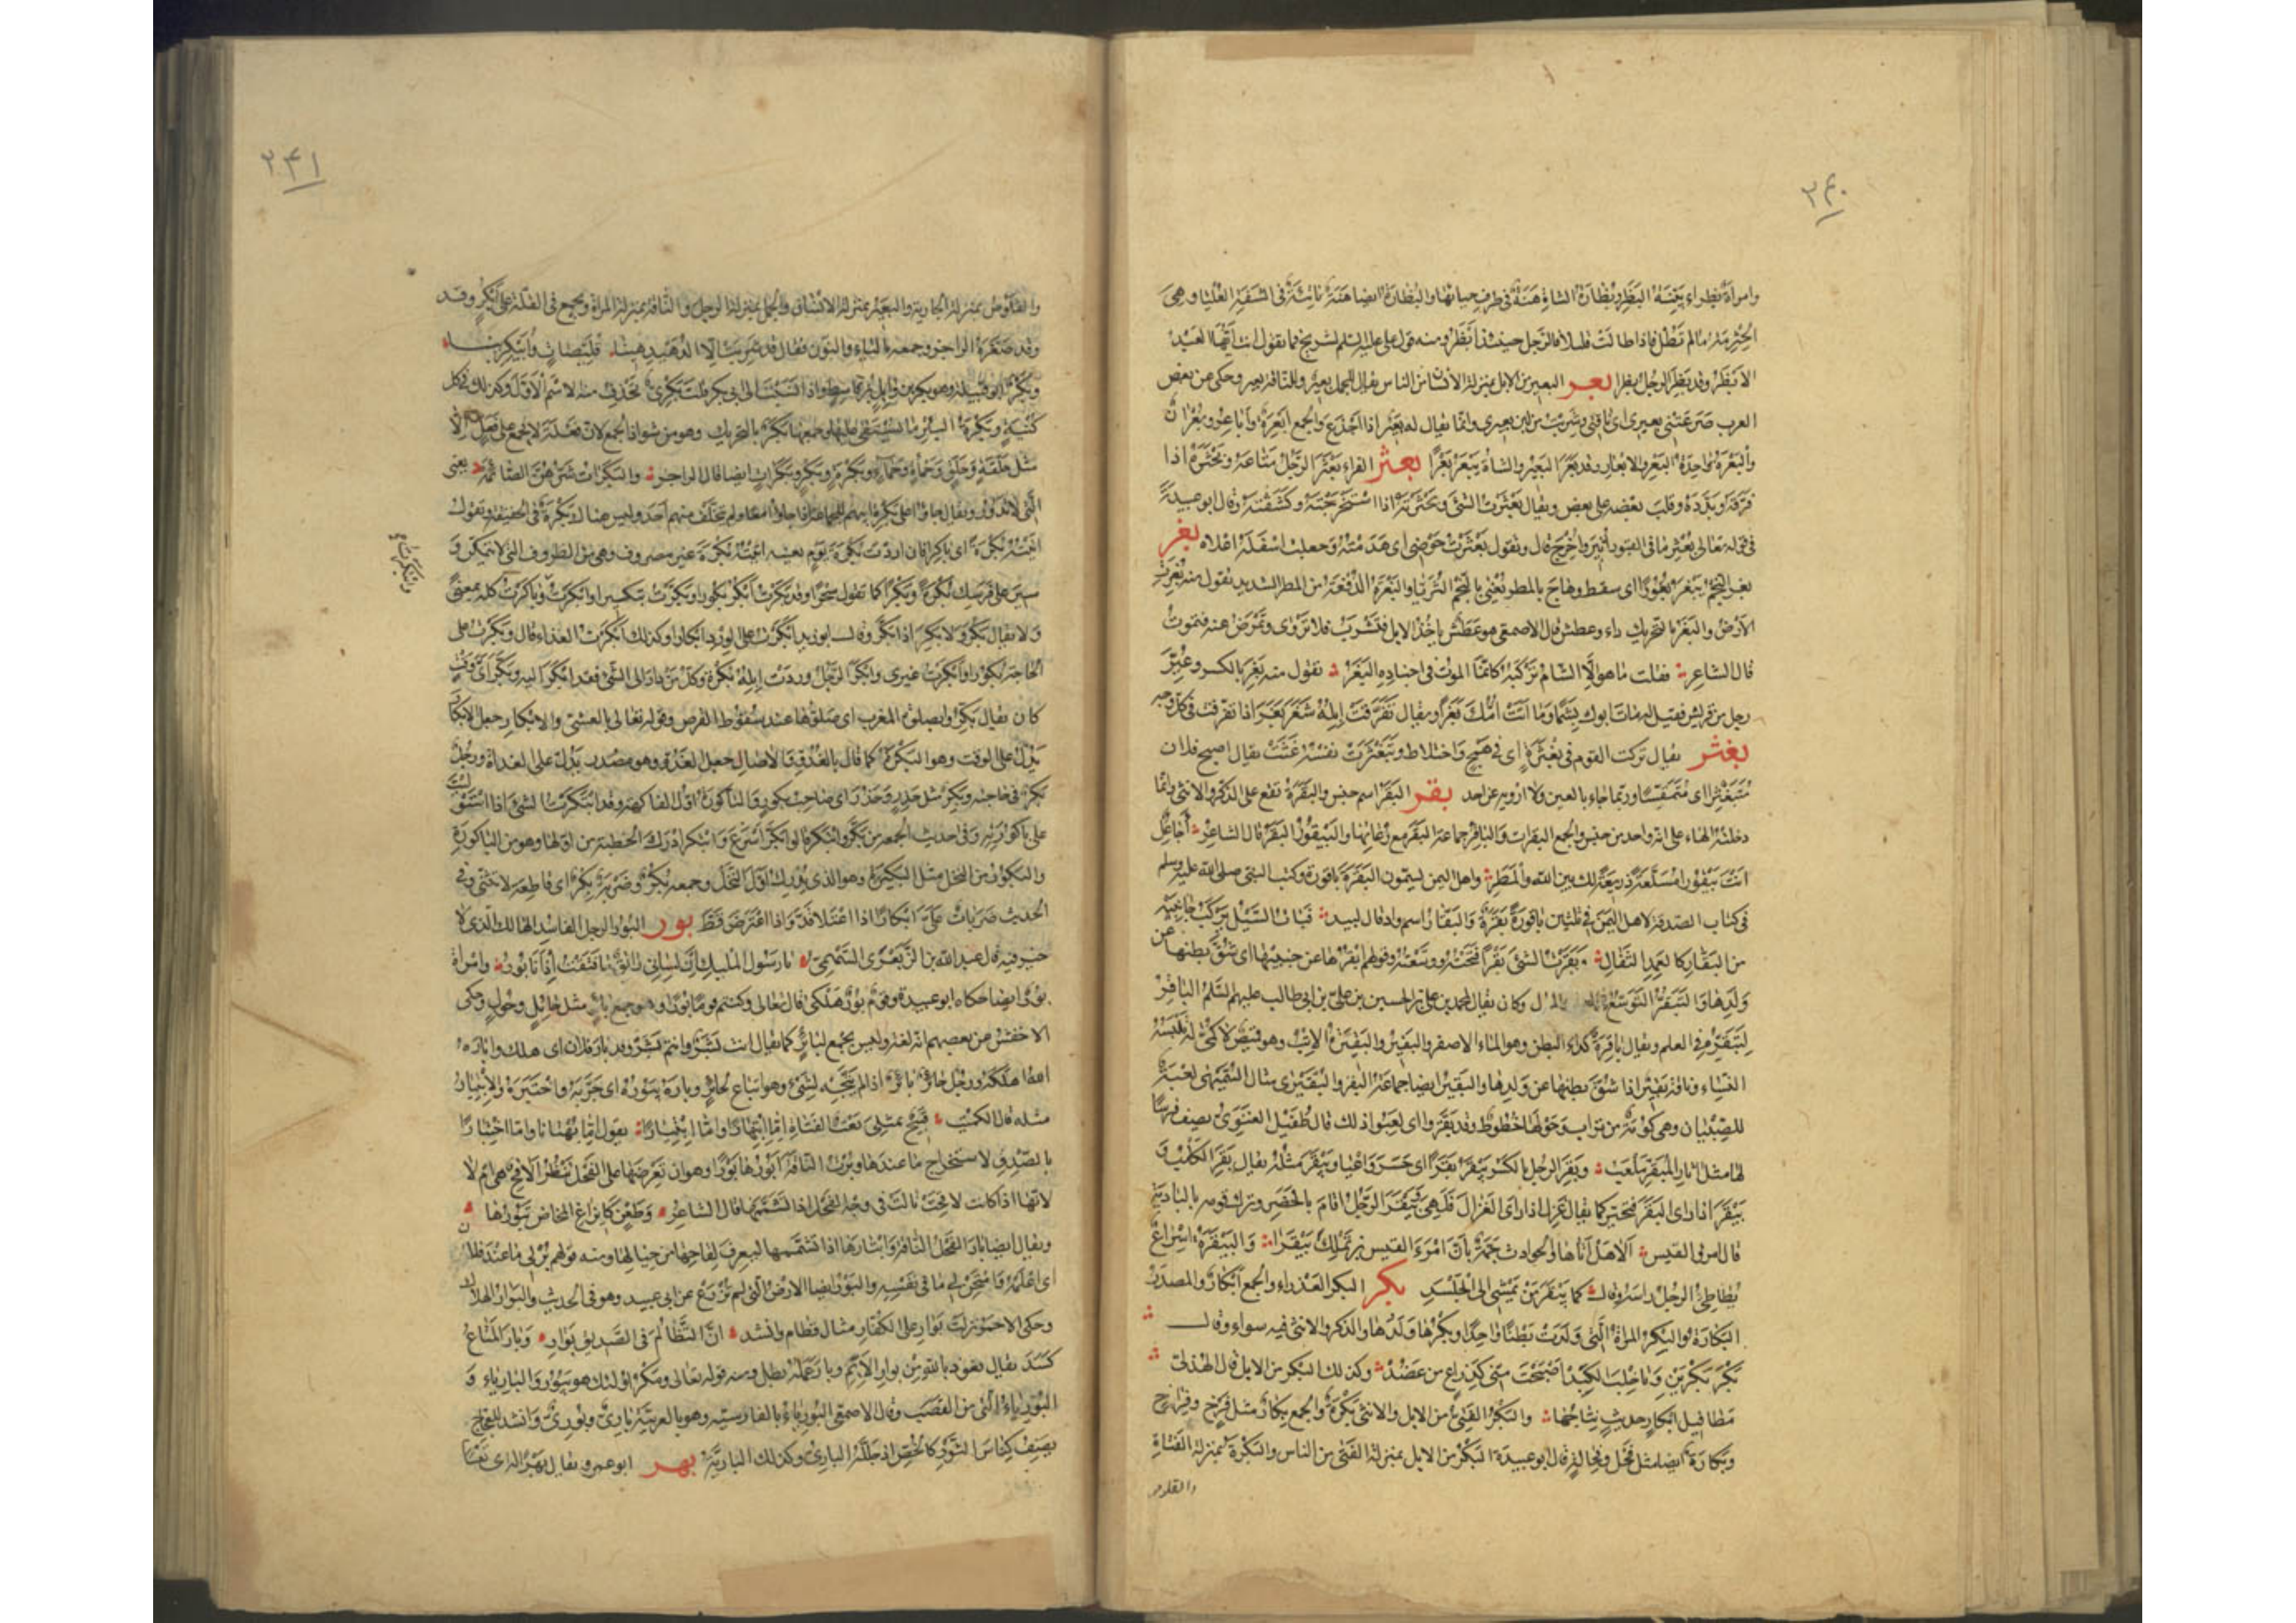 ٢٤٠
وامرأة بظراء بيّنة البظر وبظارة الشاة هنة فى طرف حيائها والبظارة ايضا هنة ناتئة فى الشفة العليا وهى
ما لم تطل فاذا طالت قليلا فالرجل حينئذ ابظر ومنه قول على عليه السلم لشريح فما تقول انت ايّها العبد
الابظر وقد بظر الرجل بظرا بعر البعير من الابل بمنزلة الانسان من الناس يقال للجمل بعير وللناقة بعير وحكى من بعض
العرب صرعتنى بعيرى اى ناقتى وشربت من لبن بعيرى وانما يقال له بعير اذا اجذع والجمع ابعرة واباعر وبعران
والبعرة واحدة البعر والابعار وقد بعر البعير والشاة يبعر بعرا بعثر الفراء بعثر الرجل متاعه وبحثره اذا
فرّقه وبدّده وقلب بعضه على بعض ويقال بعثرت الشئ وبحثرته اذا استخرجته وكشفته وقال ابو عبيدة
فى قوله تعالى بعثر ما فى القبور أثير واخرج قال وتقول بعثرت حوضى اى هدمته وجعلت اسفله اعلاه بغر
بغر النجم يبغر بغورا اى سقط وهاج بالمطر يعنى بالنجم الثريا والبغرة الدفعة من المطر الشديد تقول منه بغرت
الارض والبغر بالتحريك داء وعطش قال الاصمعى هو عطش ياخذ الابل فتشرب فلا تروى وتمرض عنه فتموت
قال الشاعر فقلت ما هو الّا الشام تركبه كانما الموت فى اجناده البغر تقول منه بغر بالكسر وعيّر
رجل من قريش فقيل له مات ابوك بشما وماتت امّك بغرا ويقال تفرقت ابله شغر بغر اذا تفرقت فى كل وجه
بغثر يقال تركت القوم فى بغثرة اى فى هيج واختلاط وتبغثرت نفسه غثت يقال اصبح فلان
متبغثرا اى متمقسا وربما جاء بالعين ولا ارويه عن احد بقر البقر اسم جنس والبقرة تقع على الذكر والانثى وانما
دخلته الهاء على انه واحد من جنس والجمع البقرات والباقر جماعة البقر مع رعاتها والبيقور البقر قال الشاعر أجاعل
انت بيقورا مسلعة ذريعة لك بين الله والمطر واهل اليمن يسمون البقرة باقورة وكتب النبى صلى الله عليه وسلم
فى كتاب الصدقة لاهل اليمن فى ثلثين باقورة بقرة والبقار اسم واد قال لبيد فبات السيل يركب جانبيه
من البقار كالعمد الثقال وبقرت الشئ بقرا فتحته ووسّعته وقولهم ابقرها عن جنينها اى شق بطنها عن
ولدها والتبقر التوسع فى العلم والمال وكان يقال لمحمد بن على بن الحسين بن على بن ابى طالب عليهم السلم الباقر
لتبقره فى العلم ويقال باقرة كداء البطن وهو الماء الاصفر والبقير والبقيرة الاتب وهو قميص لا كمّى له تلبسه
النساء وناقة بقير اذا شق بطنها عن ولدها والبقير ايضا جماعة البقر والبقيرى مثال السميهى لعبة
للصبيان وهى كومة من تراب وحولها خطوط وقد بقّروا اى لعبوا ذلك قال طفيل الغنوى يصف فرسا
لها مثل آثار المبقّر ملعب وبقر الرجل بالكسر يبقر بقرا اى حسر واعيا وبيقر مثله يقال بقر الكلب و
بيقر اذا راى البقر فتحير كما يقال غزل اذا راى الغزال فلهى وبيقر الرجل اقام بالحضر وترك قومه بالبادية
قال امرؤ القيس الا هل اتاها والحوادث جمة بان امرء القيس بن تملك بيقرا والبيقرة اسراع
يطاطئ الرجل راسه وقال كما بيقر من يمشى الى الجلسد بكر البكر العذراء والجمع ابكار والمصدر
البكارة والبكر المراة التى ولدت بطنا واحدا وبكرها ولدها والذكر والانثى فيه سواء وقال
بكر بكرين ويا خلب الكبد اصبحت منى كذراع من عضد وكذلك البكر من الابل قال الهذلى
مطافيل ابكار حديث نتاجها والبكر الفتى من الابل والانثى بكرة والجمع بكار مثل فرخ وفراخ
وبكارة ايضا مثل فحل وفحالة قال ابو عبيدة البكر من الابل بمنزلة الفتى من الناس والبكرة بمنزلة الفتاة
والقلوص
٢٤١
والقلوص بمنزلة الجارية والبعير بمنزلة الانسان والجمل بمنزلة الرجل والناقة بمنزلة المراة ويجمع فى القلة على ابكر وقد
وقد صغره الراجز وجمعه بالياء والنون فقال قد شربت الا الدهيدهينا قليّصات وابيكرينا
وبكر ابو قبيلة وهو بكر بن وائل بن قاسط واذا نسبت الى ابى بكر قلت بكرى تحذف منه الاسم الاول وكذلك فى كل
كنية وبكرة البئر ما يستقى عليها وجمعها بكر بالتحريك وهو من شواذ الجمع لان فعلة لا تجمع على فعل الا
مثل حلقة وحلق وحمأة وحمأ وبكرة وبكر وبكرات ايضا قال الراجز والبكرات شرهن الصائمة يعنى
التى لا تدور ويقال جاؤا على بكرة ابيهم للجماعة اذا جاوا معا ولم يتخلف منهم احد وليس هناك بكرة فى الحقيقة وتقول
اتيته بكرة اى باكرا فان اردت بكرة يوم بعينه اتيته بكرة غير مصروف وهى من الظروف التى لا تتمكن و
سير على فرسك بكرة وبكرا كما تقول سحرا وقد بكرت ابكر بكورا وبكرت تبكيرا وابكرت وباكرت كله بمعنى
ولا يقال بكر ولا بكر اذا بكر وقال ابو زيد ابكرت على الورد ابكارا وكذلك ابكرت الغداء قال وبكرت على
الحاجة بكورا وابكرت غيرى وابكر الرجل وردت ابله بكرة وكل من بادر الى الشئ فقد ابكر اليه وبكر اى وقت
كان يقال بكروا بصلاة المغرب اى صلوها عند سقوط القرص وقوله تعالى بالعشى والابكار جعل الابكار
يدل على الوقت وهو البكرة كما قال بالغدو والاصال جعل الغدو وهو مصدر يدل على الغداة ورجل
بكر فى حاجته وبكر مثل حذر وحذر اى صاحب بكور والباكورة اول الفاكهة وقد ابتكرت الشئ اذا استوليت
على باكورته وفى حديث الجمعة من بكر وابتكر قالوا بكر اسرع وابتكر ادرك الخطبة من اولها وهو من الباكورة
والبكور من النخل مثل البكيرة وهو الذى يدرك اول النخل وجمعه بكر وضربة بكر اى قاطعة لا تثنى وفى
الحديث ضربات على ابكارا اذا اعتلا قدّ واذا اعترض قطّ بور البور الرجل الفاسد الهالك الذى لا
خير فيه قال عبد الله بن الزبعرى السهمى يا رسول المليك ان لسانى راتق ما فتقت اذ انا بور وامراة
بور ايضا حكاه ابو عبيدة وقوم بور هلكى قال تعالى وكنتم قوما بورا وهو جمع بائر مثل حائل وحول وحكى
الاخفش عن بعضهم انه لغة وليس بجمع لبائر كما يقال انت بشر وانتم بشر وقد بار فلان اى هلك واباره
الله اهلكه ورجل حائر بائر اذا لم يتجه لشئ وهو اتباع لحائر وباره يبوره اى جربه واختبره والابتيار
مثله قال الكميت قبيح بمثلى نعت الفتاة امّا ابتهارا وامّا ابتيارا يقول امّا بهتانا وامّا اختبارا
بالصدق لاستخراج ما عندها وبرت الناقة ابورها بورا وهو ان تعرضها على الفحل تنظر الاقح هى ام لا
لانها اذا كانت لاقحت بالت فى وجه الفحل اذا تشممها قال الشاعر وطعن كايزاغ المخاض تبورها
ويقال ايضا بار الفحل الناقة وابتارها اذا تشممها ليعرف لقاحها من حيالها ومنه قولهم بر لى ما عند فلان
اى اعلمه وامتحن لى ما فى نفسه والبور ايضا الارض التى لم تزرع عن ابى عبيد وهو فى الحديث والبوار الهلاك
وحكى الاحمر نزلت بوار على الكفار مثال قطام وانشد انّ التظالم فى الصديق بوار وبار المتاع
كسد يقال نعوذ بالله من بوار الايّم وبار عمله بطل ومنه قوله تعالى ومكر اولئك هو يبور والبارياء و
البورياء التى من القصب وقال الاصمعى البورياء بالفارسية وهو بالعربية بارى وبورى وانشد للعجاج
يصف كناس الثور كالخص اذ جلله البارى وكذلك البارية بهر ابو عمرو يقال بهرا له اى تعسا